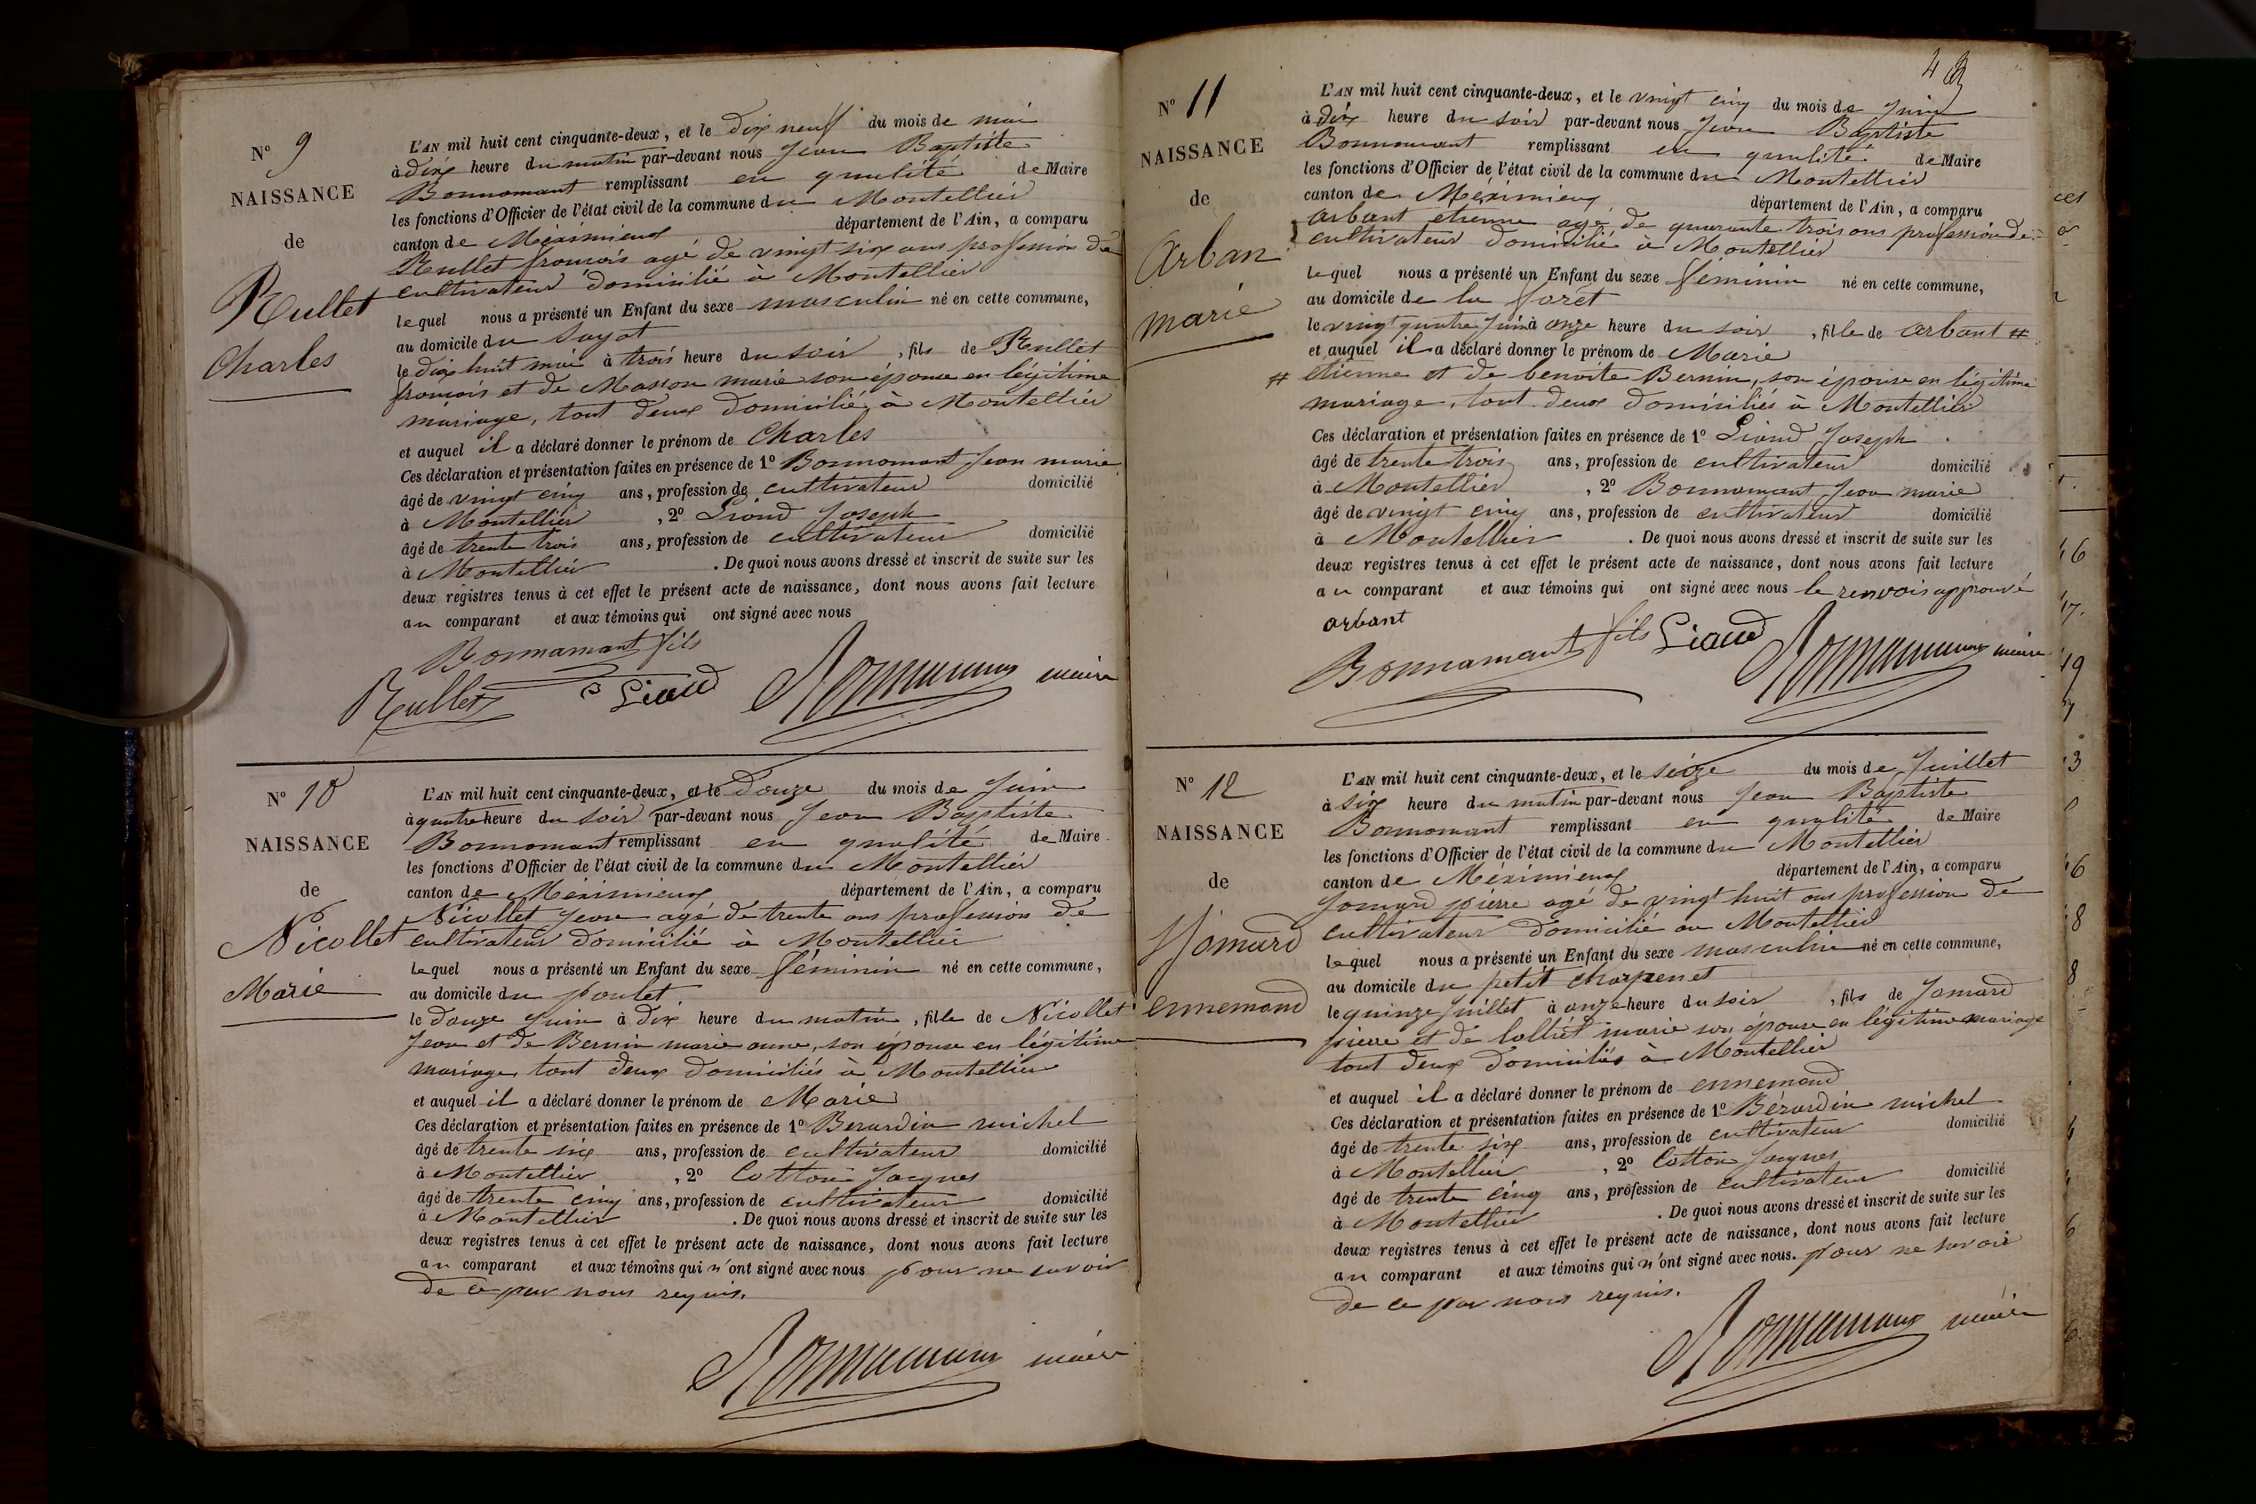 N° 9
NAISSANCE
de
Rullet
Charles
L'AN mil huit cent cinquante-deux, et le dix neuf du mois de mai
à dix heure du matin par-devant nous Jean Baptiste
Bonnamant remplissant en qualité de Maire
les fonctions d'Officier de l'état civil de la commune du Montellier
canton de Méximieux département de l'Ain, a comparu
Rullet francois agé de vingt six ans profession de
cultivateur domicilié à Montellier
lequel nous a présenté un Enfant du sexe masculin né en cette commune,
au domicile du
le dix huit mai à trois heure du soir, fils de Rullet
francois et de Masson marie son épouse en légitime
mariage, tout deux domicilié à Montellier
et auquel il a déclaré donner le prénom de Charles
Ces déclaration et présentation faites en présence de 1° Bonnamant Jean marie
âgé de vingt cinq ans, profession de cultivateur domicilié
à Montellier, 2° Liaud Joseph
âgé de trente trois ans, profession de cultivateur domicilié
à Montellier. De quoi nous avons dressé et inscrit de suite sur les
deux registres tenus à cet effet le présent acte de naissance, dont nous avons fait lecture
au comparant et aux témoins qui ont signé avec nous
Bonnamant fils
Rullet Liaud Bonnamant maire
N° 10
NAISSANCE
de
Nicollet
Marie
L'AN mil huit cent cinquante-deux, et le douze du mois de Juin
à quatre heure du soir par-devant nous Jean Baptiste
Bonnamant remplissant en qualité de Maire
les fonctions d'Officier de l'état civil de la commune du Montellier
canton de Méximieux département de l'Ain, a comparu
Nicollet Jean agé de trente ans profession de
cultivateur domicilié à Montellier
lequel nous a présenté un Enfant du sexe féminin né en cette commune,
au domicile du poulet
le douze Juin à dix heure du matin, fille de Nicollet
Jean et de Bernin marie anne, son épouse en légitime
mariage, tout deux domiciliés à Montellier
et auquel il a déclaré donner le prénom de Marie
Ces déclaration et présentation faites en présence de 1° Berardin michel
âgé de trente six ans, profession de cultivateur domicilié
à Montellier, 2° Cotton Jacques
âgé de trente cinq ans, profession de cultivateur domicilié
à Montellier. De quoi nous avons dressé et inscrit de suite sur les
deux registres tenus à cet effet le présent acte de naissance, dont nous avons fait lecture
au comparant et aux témoins qui n'ont signé avec nous pour ne savoir
de ce par nous requis.
Bonnamant maire
43
N° 11
NAISSANCE
de
Arban
marie
L'AN mil huit cent cinquante-deux, et le vingt cinq du mois de Juin
à dix heure du soir par-devant nous Jean Baptiste
Bonnamant remplissant en qualité de Maire
les fonctions d'Officier de l'état civil de la commune du Montellier
canton de Méximieux département de l'Ain, a comparu
arbant etienne agé de quarante trois ans profession de
cultivateur domicilié à Montellier
lequel nous a présenté un Enfant du sexe féminin né en cette commune,
au domicile de la forêt
le vingt quatre Juin à onze heure du soir, fille de arbant #
et auquel il a déclaré donner le prénom de Marie
# etienne et de benoite Bernin, son épouse en légitime
mariage, tout deux domiciliés à Montellier
Ces déclaration et présentation faites en présence de 1° Liaud Joseph
âgé de trente trois ans, profession de cultivateur domicilié
à Montellier, 2° Bonnamant Jean marie
âgé de vingt cinq ans, profession de cultivateur domicilié
à Montellier. De quoi nous avons dressé et inscrit de suite sur les
deux registres tenus à cet effet le présent acte de naissance, dont nous avons fait lecture
au comparant et aux témoins qui ont signé avec nous le renvois approuvé
arbant
Bonnamant fils Liaud Bonnamant maire
N° 12
NAISSANCE
de
Jomard
ennemond
L'AN mil huit cent cinquante-deux, et le seize du mois de Juillet
à six heure du matin par-devant nous Jean Baptiste
Bonnamant remplissant en qualité de Maire
les fonctions d'Officier de l'état civil de la commune du Montellier
canton de Méximieux département de l'Ain, a comparu
Jomard pierre agé de vingt huit ans profession de
cultivateur domicilié au Montellier
lequel nous a présenté un Enfant du sexe masculin né en cette commune,
au domicile du petit charpenet
le quinze Juillet à onze heure du soir, fils de Jomard
pierre et de marie son épouse en légitime mariage
tout deux domiciliés à Montellier
et auquel il a déclaré donner le prénom de ennemond
Ces déclaration et présentation faites en présence de 1° Bérardin michel
âgé de trente six ans, profession de cultivateur domicilié
à Montellier, 2° Cotton Jacques
âgé de trente cinq ans, profession de cultivateur domicilié
à Montellier. De quoi nous avons dressé et inscrit de suite sur les
deux registres tenus à cet effet le présent acte de naissance, dont nous avons fait lecture
au comparant et aux témoins qui n'ont signé avec nous. pour ne savoir
de ce par nous requis.
Bonnamant maire